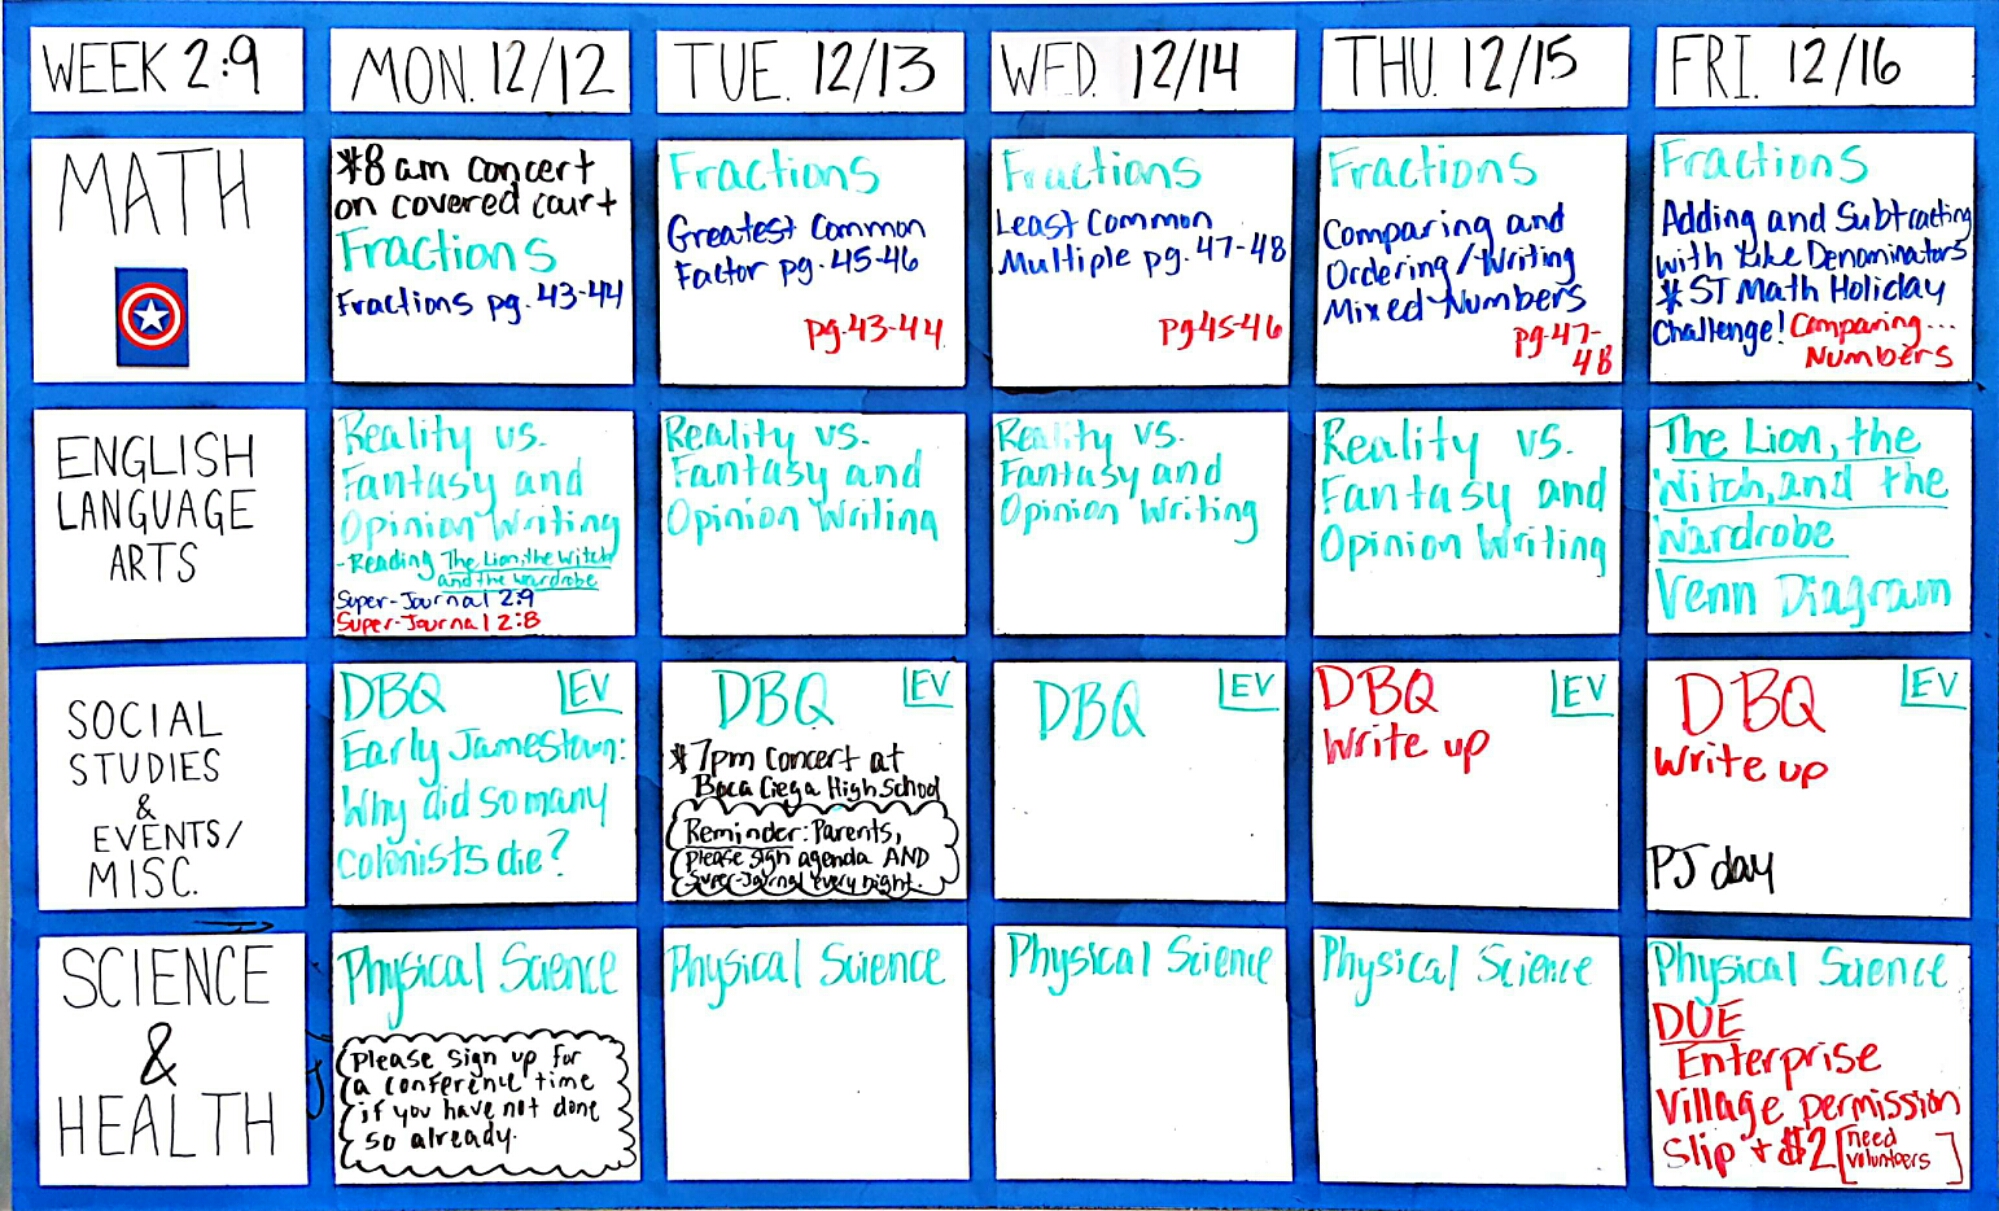 WEEK 2:9
MON. 12/12
TUE. 12/13
WED. 12/14
THU. 12/15
FRI. 12/16
MATH
*8 am concert
on covered court
Fractions
Fractions pg. 43-44
Fractions
Greatest Common
Factor pg. 45-46
pg. 43-44
Fractions
Least Common
Multiple pg. 47-48
pg 45-46
Fractions
Comparing and
Ordering/Writing
Mixed Numbers
pg. 47-
48
Fractions
Adding and Subtracting
with Like Denominators
* ST Math Holiday
Challenge! Comparing...
Numbers
ENGLISH
LANGUAGE
ARTS
Reality vs.
Fantasy and
Opinion Writing
- Reading The Lion, the Witch
and the Wardrobe
Super-Journal 2:9
Super-Journal 2:8
Reality vs.
Fantasy and
Opinion Writing
Reality vs.
Fantasy and
Opinion Writing
Reality vs.
Fantasy and
Opinion Writing
The Lion, the
Witch, and the
Wardrobe
Venn Diagram
SOCIAL
STUDIES
&
EVENTS/
MISC.
DBQ LEV
Early Jamestown:
Why did so many
colonists die?
DBQ LEV
* 7pm concert at
Boca Ciega High School
Reminder: Parents,
please sign agenda AND
Super-Journal every night.
DBQ LEV
DBQ LEV
Write up
DBQ LEV
Write up
PJ day
SCIENCE
&
HEALTH
Physical Science
Please sign up for
a conference time
if you have not done
so already.
Physical Science
Physical Science
Physical Science
Physical Science
DUE
Enterprise
Village permission
Slip + $2 [need
volunteers]